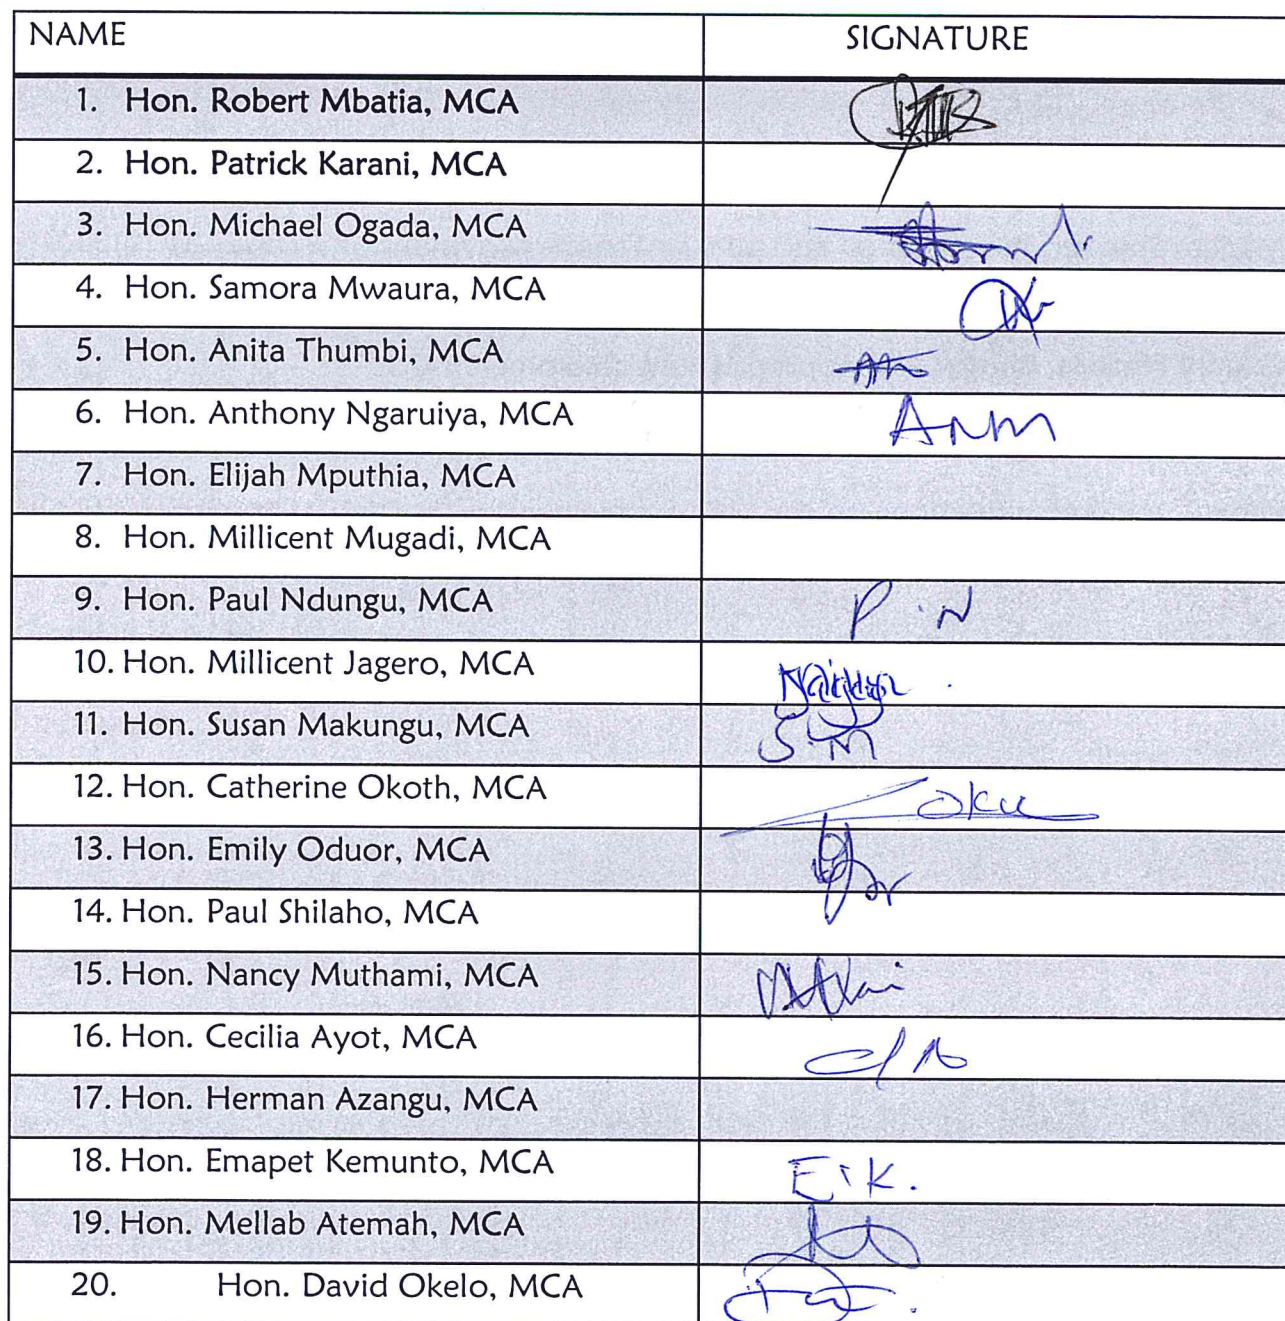 NAME SIGNATURE
1. Hon. Robert Mbatia, MCA
2. Hon. Patrick Karani, MCA
3. Hon. Michael Ogada, MCA
4. Hon. Samora Mwaura, MCA
5. Hon. Anita Thumbi, MCA
6. Hon. Anthony Ngaruiya, MCA
7. Hon. Elijah Mputhia, MCA
8. Hon. Millicent Mugadi, MCA
9. Hon. Paul Ndungu, MCA P.N
10. Hon. Millicent Jagero, MCA
11. Hon. Susan Makungu, MCA S.M
12. Hon. Catherine Okoth, MCA
13. Hon. Emily Oduor, MCA
14. Hon. Paul Shilaho, MCA
15. Hon. Nancy Muthami, MCA
16. Hon. Cecilia Ayot, MCA
17. Hon. Herman Azangu, MCA
18. Hon. Emapet Kemunto, MCA E.K.
19. Hon. Mellab Atemah, MCA
20. Hon. David Okelo, MCA